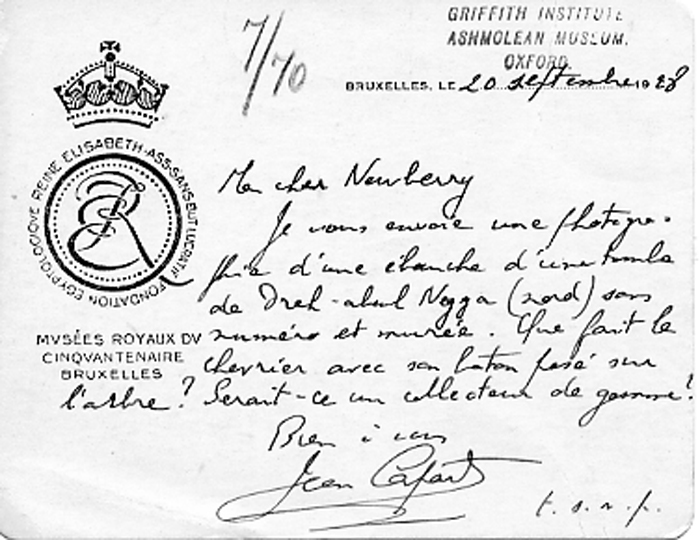 7/70
GRIFFITH INSTITUTE
ASHMOLEAN MUSEUM.
OXFORD.
BRUXELLES, LE 20 septembre 1928
FONDATION EGYPTOLOGIQVE REINE ELISABETH-ASS-SANS BUT LUCRATIF
MVSÉES ROYAUX DV
CINQVANTENAIRE
BRUXELLES
Mon cher Newberry
Je vous envoie une photogra-
phie d'une ébauche d'une tombe
de Drah-abul Negga (nord) sans
numéro et murée. Que fait le
chevrier avec son baton posé sur
l'arbre? Serait-ce un collecteur de gomme?
Bien à vous
Jean Capart
t.s.v.p.